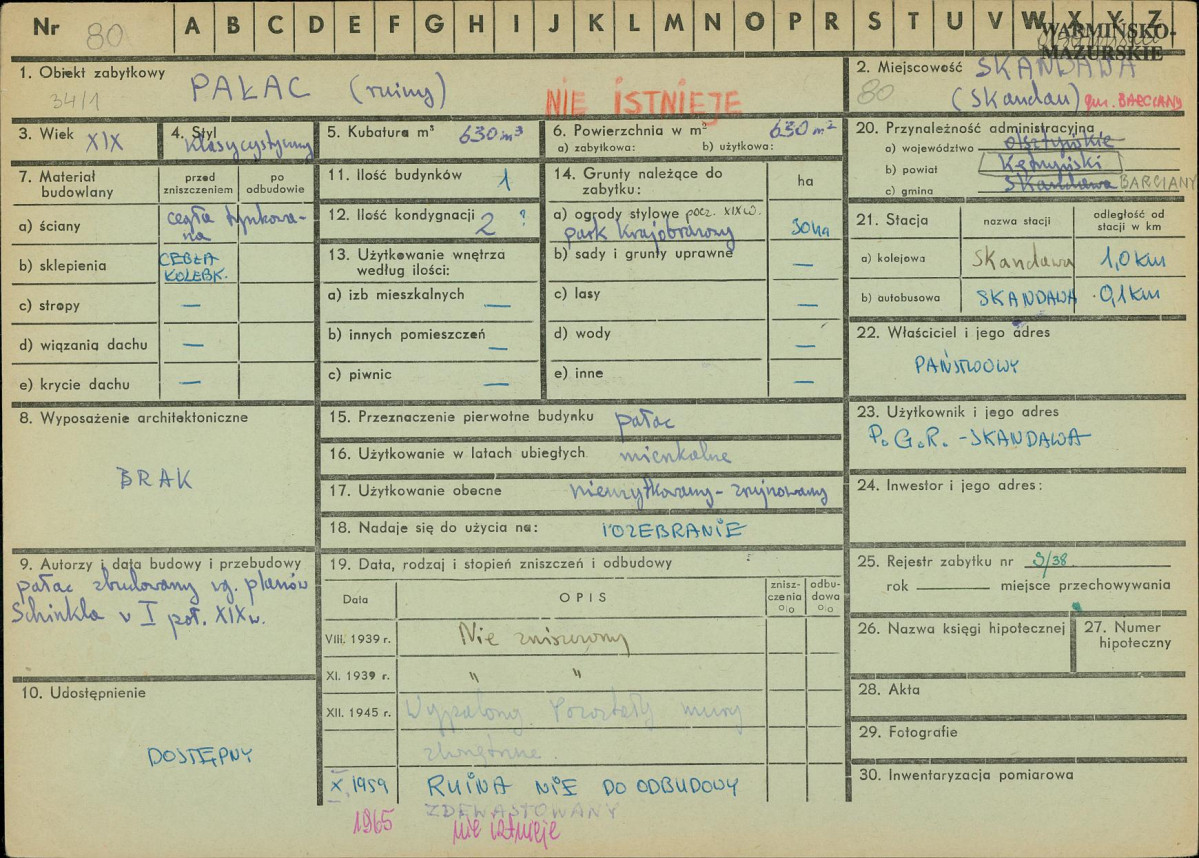 Nr 80 A B C D E F G H I J K L M N O P R S T U V W X Y Z
WARMIŃSKO-
MAZURSKIE
1. Obiekt zabytkowy
34/1
PAŁAC (ruiny)
NIE ISTNIEJE
2. Miejscowość SKANDAWA
80 (Skandau) gm. BARCIANY
3. Wiek XIX
4. Styl
klasycystyczny
5. Kubatura m³ 630 m³
6. Powierzchnia w m² 630 m²
a) zabytkowa: b) użytkowa:
20. Przynależność administracyjna
a) województwo olsztyńskie
b) powiat Kętrzyński
c) gmina Skandawa BARCIANY
7. Materiał
budowlany
przed
zniszczeniem
po
odbudowie
a) ściany cegła tynkowa-
na
b) sklepienia CEGŁA
KOLEBK.
c) stropy —
d) wiązania dachu —
e) krycie dachu —
11. Ilość budynków 1
12. Ilość kondygnacji 2 ?
13. Użytkowanie wnętrza
według ilości:
a) izb mieszkalnych —
b) innych pomieszczeń —
c) piwnic —
14. Grunty należące do
zabytku:
ha
a) ogrody stylowe pocz. XIX w.
park krajobrazowy 30 ha
b) sady i grunty uprawne —
c) lasy —
d) wody —
e) inne —
21. Stacja
nazwa stacji
odległość od
stacji w km
a) kolejowa Skandawa 1,0 km
b) autobusowa SKANDAWA 0,1 km
22. Właściciel i jego adres
PAŃSTWOWY
8. Wyposażenie architektoniczne
BRAK
15. Przeznaczenie pierwotne budynku pałac
16. Użytkowanie w latach ubiegłych mieszkalne
17. Użytkowanie obecne nieużytkowany - zrujnowany
18. Nadaje się do użycia na: ROZEBRANIE
23. Użytkownik i jego adres
P.G.R. - SKANDAWA
24. Inwestor i jego adres:
9. Autorzy i data budowy i przebudowy
pałac zbudowany wg. planów
Schinkla w I poł. XIX w.
19. Data, rodzaj i stopień zniszczeń i odbudowy
Data
OPIS
znisz-
czenia
o/o
odbu-
dowa
o/o
VIII. 1939 r. Nie zniszczony
XI. 1939 r. " "
XII. 1945 r. Wypalony. Pozostały mury
zewnętrzne.
X. 1959 RUINA NIE DO ODBUDOWY
ZDEWASTOWANY
1965 nie istnieje
25. Rejestr zabytku nr 3/38
rok miejsce przechowywania
26. Nazwa księgi hipotecznej
27. Numer
hipoteczny
10. Udostępnienie
DOSTĘPNY
28. Akta
29. Fotografie
30. Inwentaryzacja pomiarowa